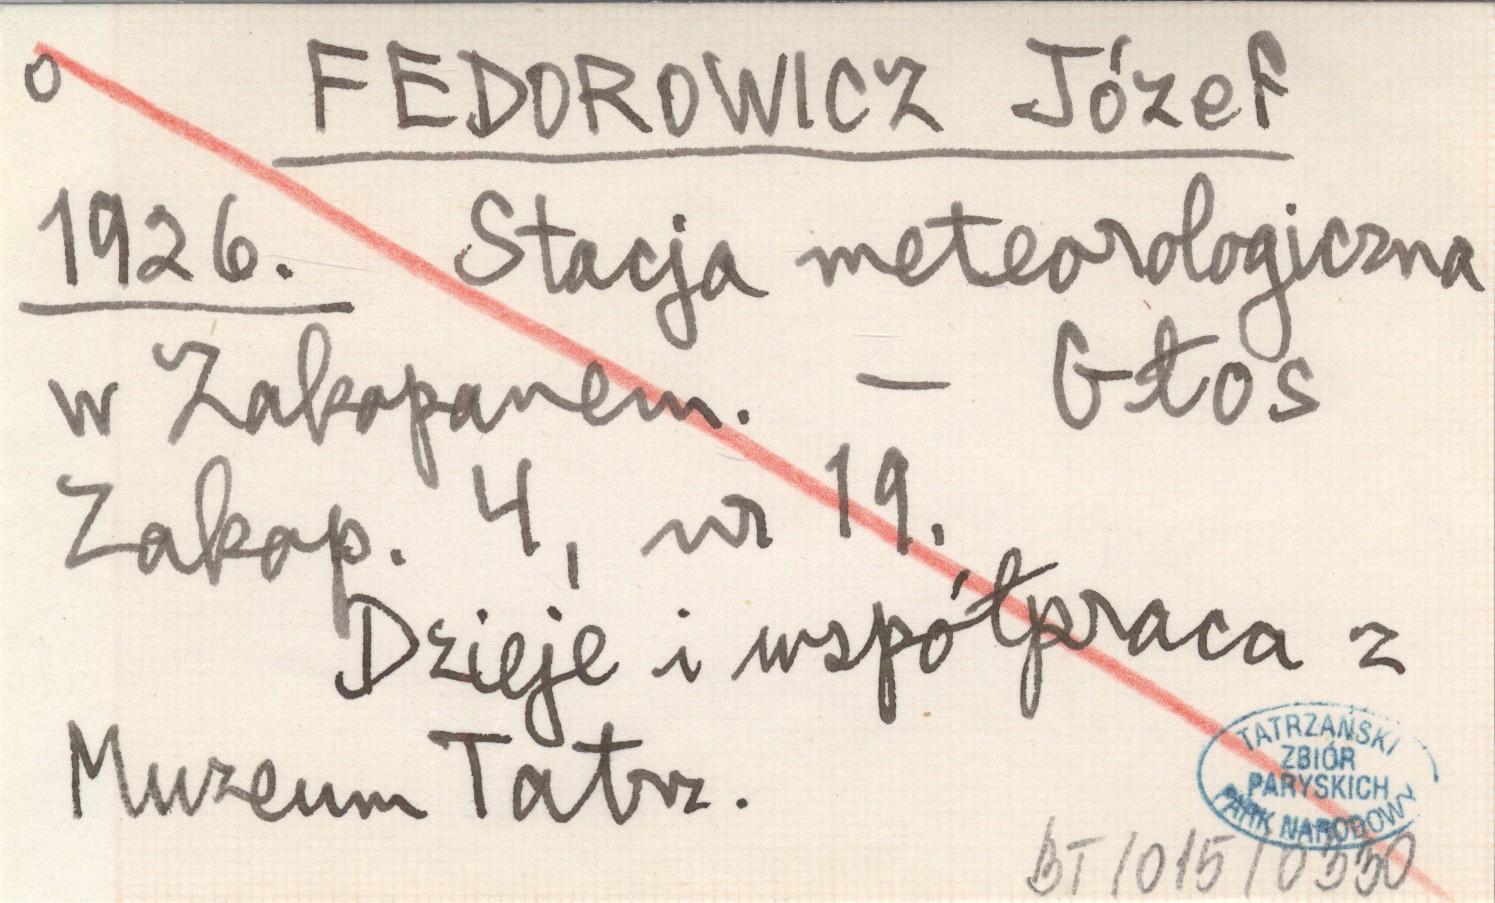 o FEDOROWICZ Józef
1926. Stacja meteorologiczna
w Zakopanem. — Głos
Zakop. 4, nr 19.
Dzieje i współpraca z
Muzeum Tatrz.
TATRZAŃSKI
ZBIÓR
PARYSKICH
PARK NARODOWY
BT/015/0330